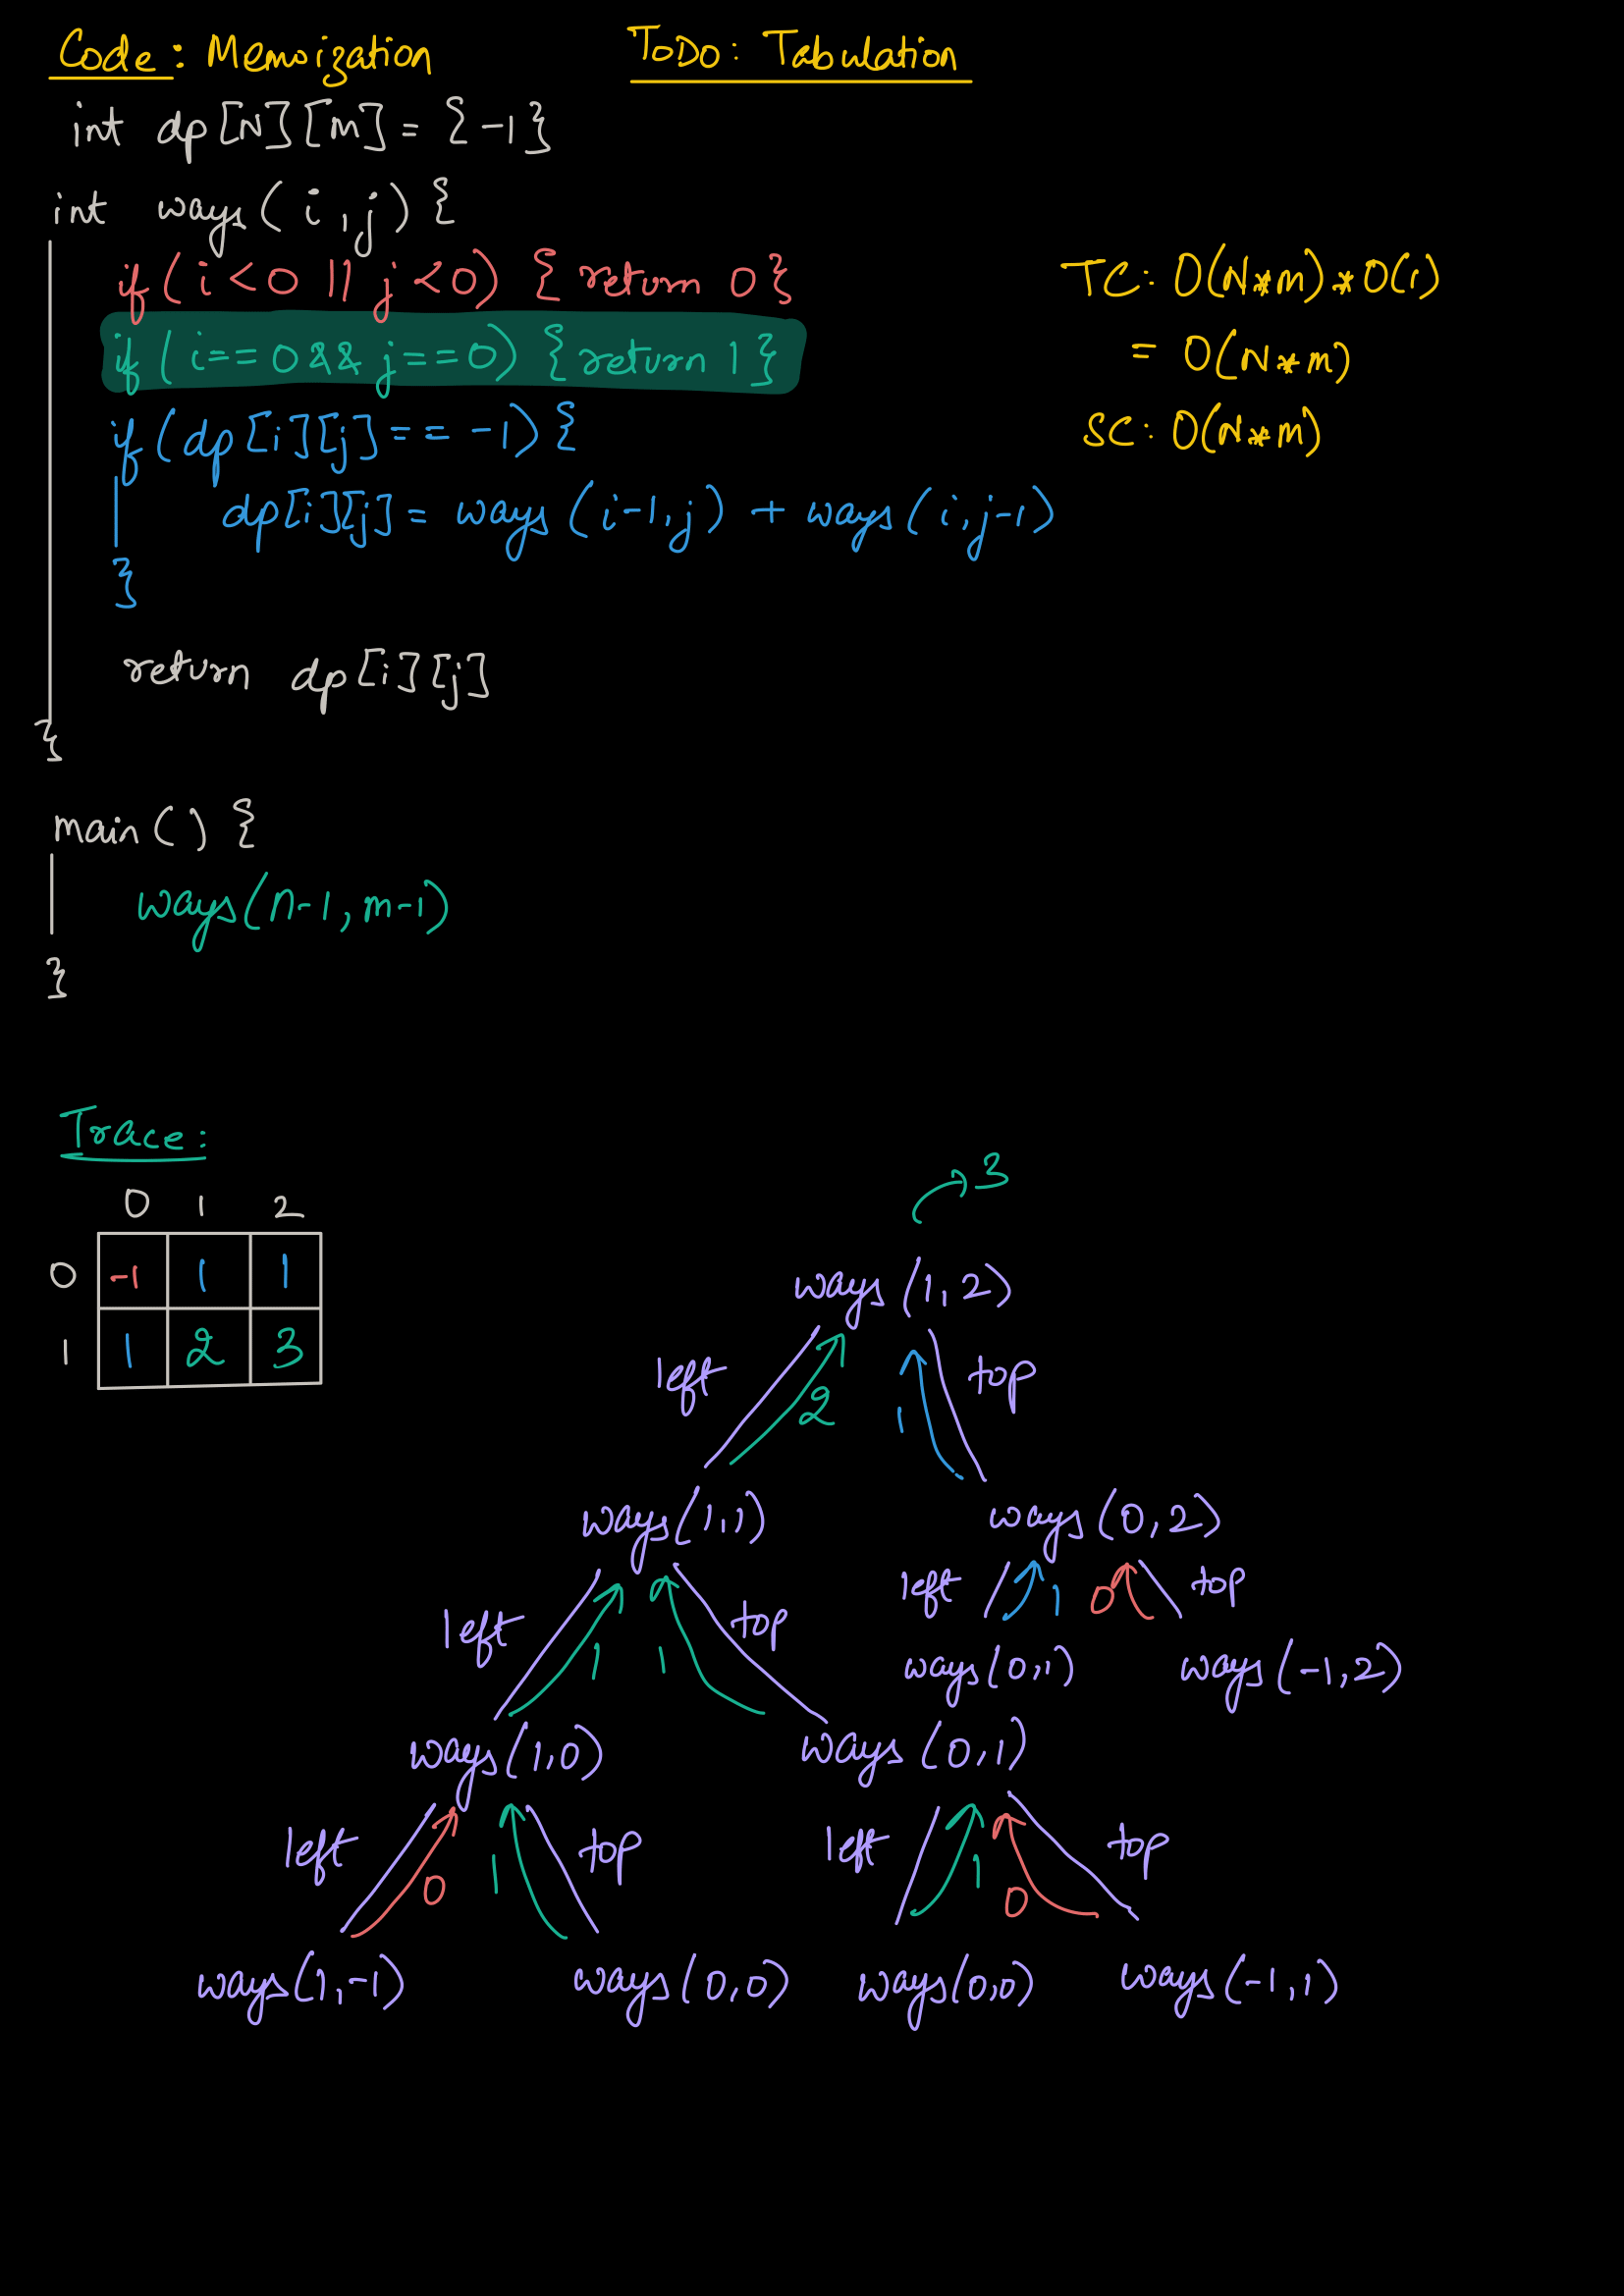 Code: Memoization
ToDo: Tabulation
int dp[N][M] = {-1}
int ways(i,j) {
if(i<0 || j<0) { return 0 }
if(i==0 && j==0) { return 1 }
if(dp[i][j] == -1) {
dp[i][j] = ways(i-1,j) + ways(i,j-1)
}
return dp[i][j]
}
TC: O(N*M)*O(1)
= O(N*M)
SC: O(N*M)
main() {
ways(n-1, m-1)
}
Trace:
0 1 2
0 -1 1 1
1 1 2 3
3
ways(1,2)
left 2 1 top
ways(1,1) ways(0,2)
left 1 1 top left 1 0 top
ways(0,1) ways(-1,2)
ways(1,0) ways(0,1)
left 0 1 top left 1 0 top
ways(1,-1) ways(0,0) ways(0,0) ways(-1,1)